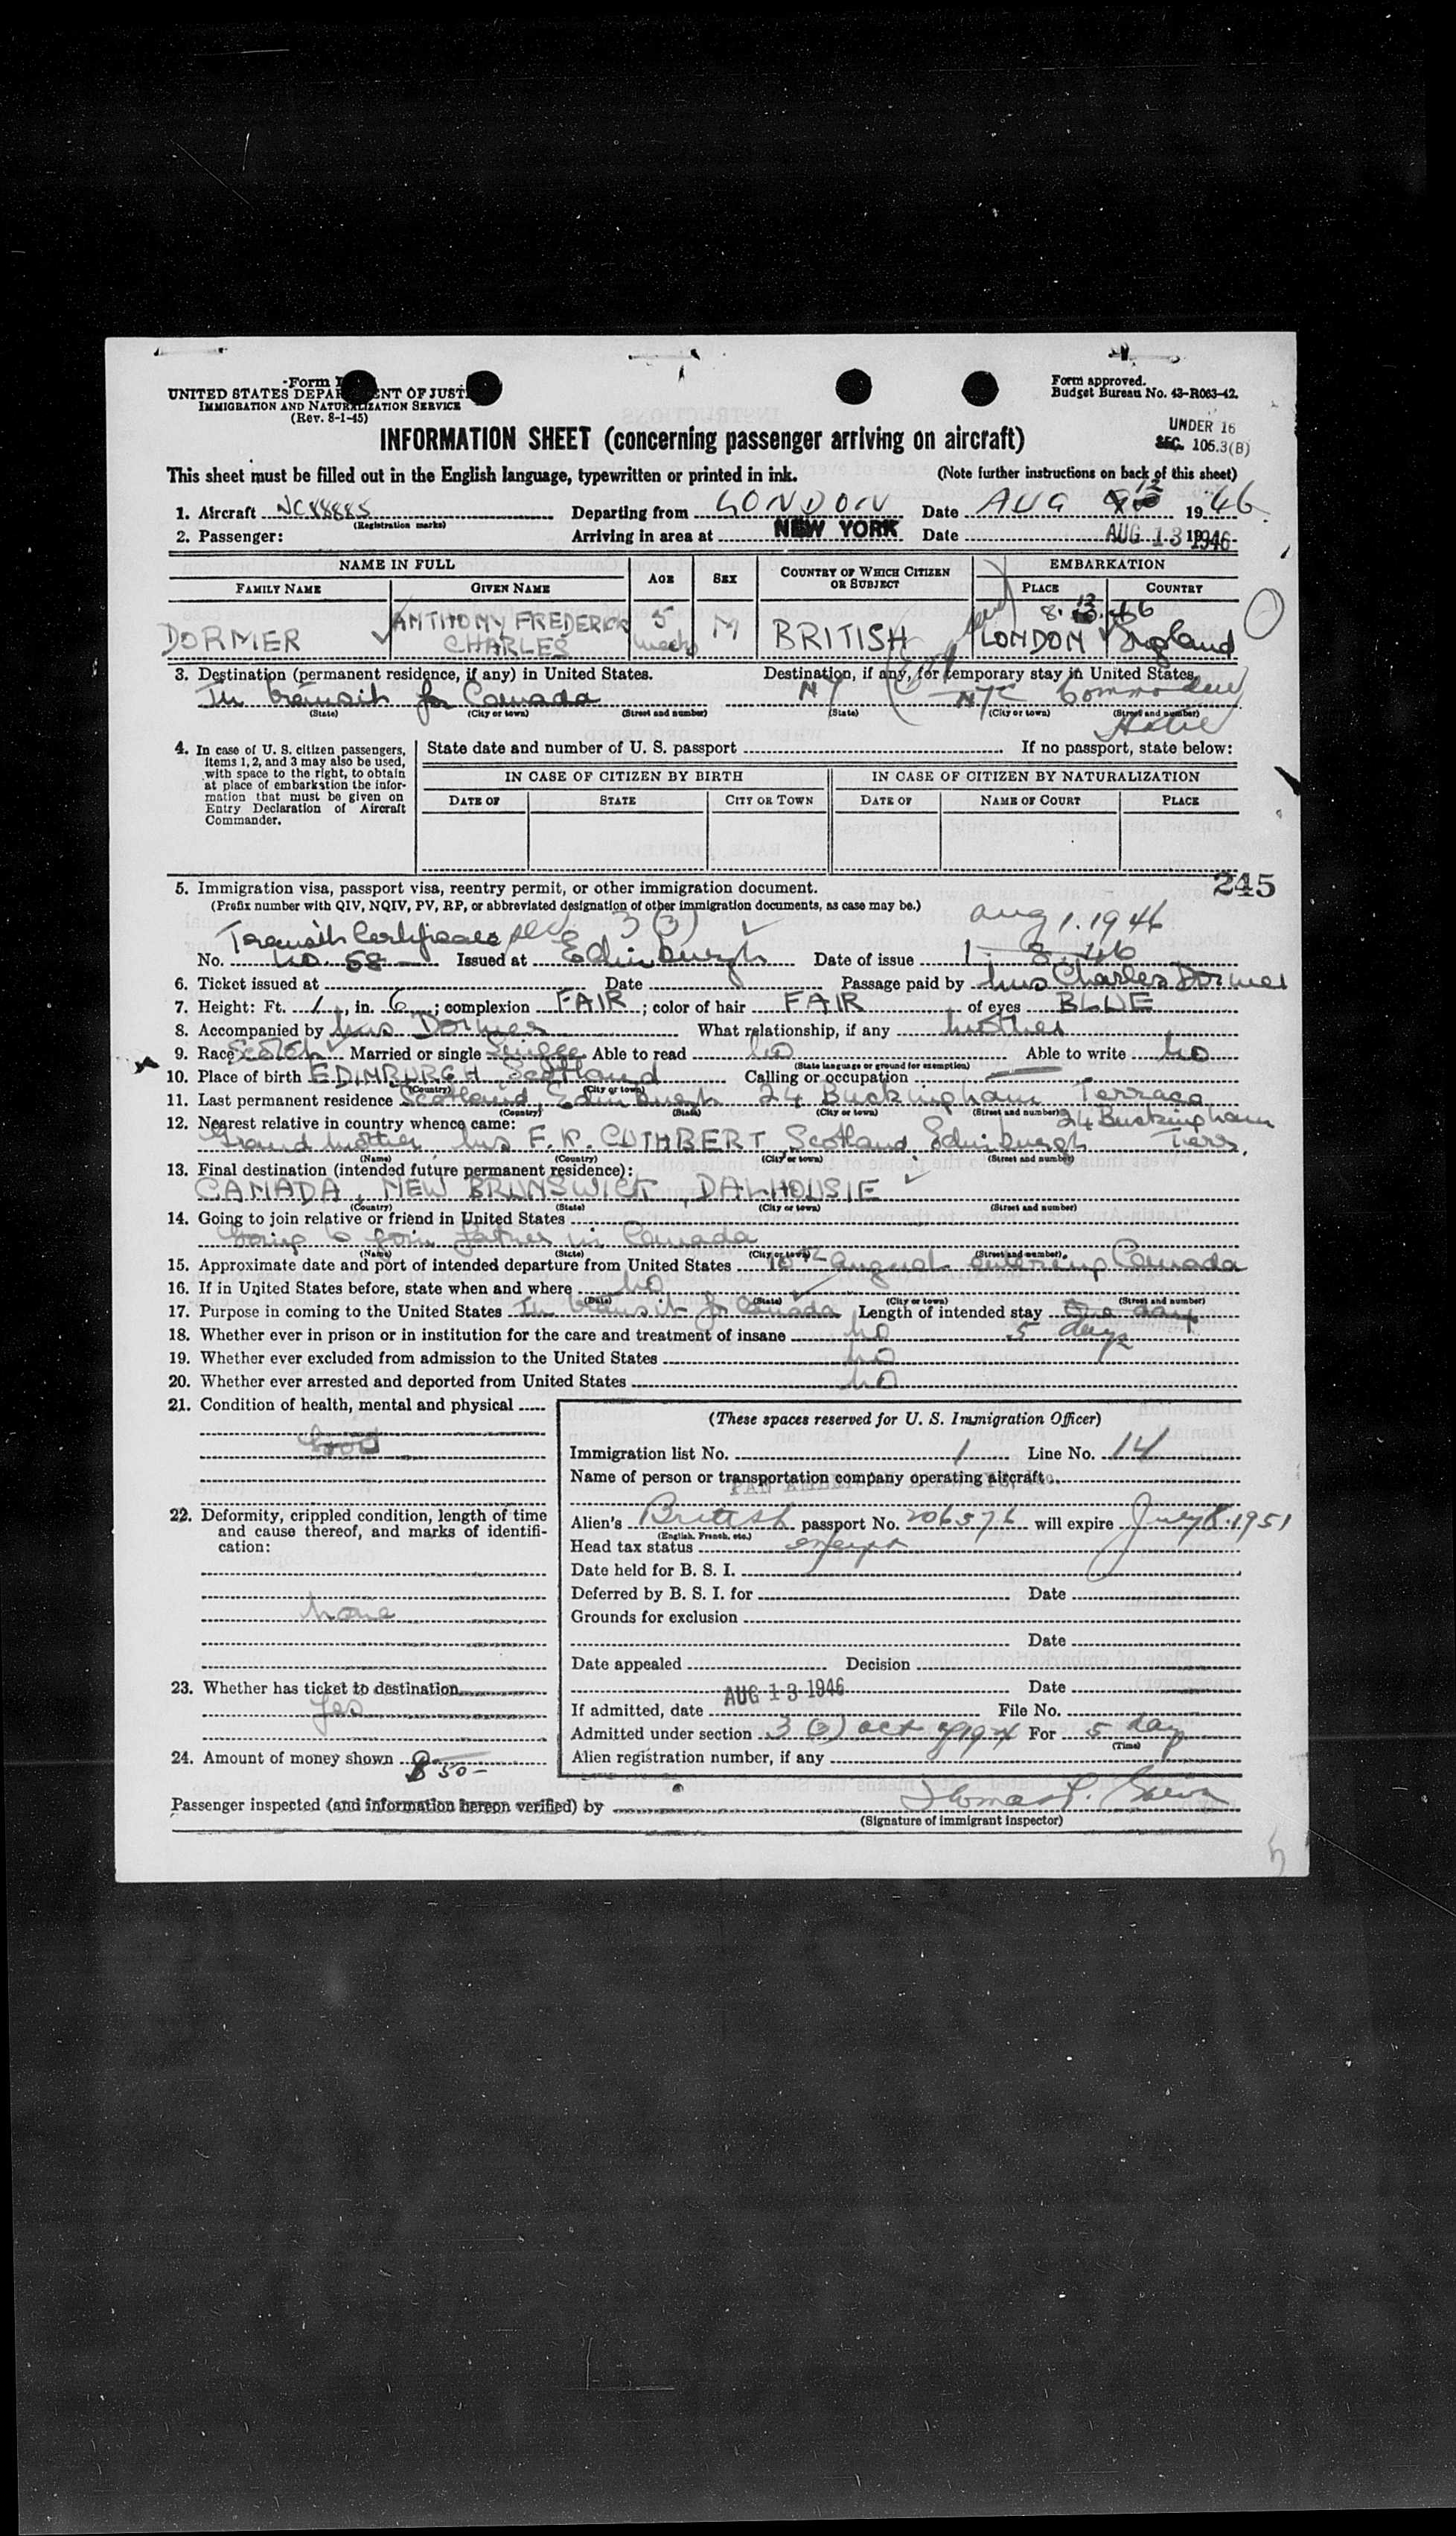 Form I
UNITED STATES DEPARTMENT OF JUSTICE
IMMIGRATION AND NATURALIZATION SERVICE
(Rev. 8-1-45)
Form approved.
Budget Bureau No. 43-R063-42.
UNDER 16
SEC. 105.3(B)
INFORMATION SHEET (concerning passenger arriving on aircraft)
This sheet must be filled out in the English language, typewritten or printed in ink. (Note further instructions on back of this sheet)
1. Aircraft NC88885 Departing from LONDON Date AUG 12 1946
(Registration marks)
2. Passenger: Arriving in area at NEW YORK Date AUG 13 1946
NAME IN FULL AGE SEX COUNTRY OF WHICH CITIZEN OR SUBJECT EMBARKATION
FAMILY NAME GIVEN NAME PLACE COUNTRY
8. 12. 46
DORMER ANTHONY FREDERICK CHARLES 5 weeks M BRITISH LONDON England
3. Destination (permanent residence, if any) in United States. Destination, if any, for temporary stay in United States.
In transit for Canada NY NYC Commodore Hotel
(State) (City or town) (Street and number) (State) (City or town) (Street and number)
4. In case of U. S. citizen passengers, items 1, 2, and 3 may also be used, with space to the right, to obtain at place of embarkation the information that must be given on Entry Declaration of Aircraft Commander.
State date and number of U. S. passport If no passport, state below:
IN CASE OF CITIZEN BY BIRTH IN CASE OF CITIZEN BY NATURALIZATION
DATE OF STATE CITY OR TOWN DATE OF NAME OF COURT PLACE
245
5. Immigration visa, passport visa, reentry permit, or other immigration document.
(Prefix number with QIV, NQIV, PV, RP, or abbreviated designation of other immigration documents, as case may be.)
Transit Certificate 3 (3) Aug 1. 1946
No. no. 58 Issued at Edinburgh Date of issue 1 - 8 - 46
6. Ticket issued at Date Passage paid by Mrs Charles Dormer
7. Height: Ft. 1, in. 6; complexion FAIR; color of hair FAIR of eyes BLUE
8. Accompanied by Mrs Dormer What relationship, if any Mother
9. Race Scotch Married or single Single Able to read no Able to write no
(State language or ground for exemption)
10. Place of birth EDINBURGH Scotland Calling or occupation
(Country) (City or town)
11. Last permanent residence Scotland, Edinburgh 24 Buckingham Terrace
(Country) (State) (City or town) (Street and number)
12. Nearest relative in country whence came: 24 Buckingham
Grand mother, Mrs F. K. CUTHBERT Scotland Edinburgh Terr.
(Name) (Country) (City or town) (Street and number)
13. Final destination (intended future permanent residence):
CANADA, NEW BRUNSWICK, DALHOUSIE
(Country) (State) (City or town) (Street and number)
14. Going to join relative or friend in United States
Going to join father in Canada
(Name) (State) (City or town) (Street and number)
15. Approximate date and port of intended departure from United States 10th August entering Canada
16. If in United States before, state when and where no
(Date) (State) (City or town) (Street and number)
17. Purpose in coming to the United States In transit for Canada Length of intended stay One day
5 days
18. Whether ever in prison or in institution for the care and treatment of insane no
19. Whether ever excluded from admission to the United States no
20. Whether ever arrested and deported from United States no
21. Condition of health, mental and physical
Good
22. Deformity, crippled condition, length of time and cause thereof, and marks of identification:
None
23. Whether has ticket to destination
Yes
24. Amount of money shown $ 50-
(These spaces reserved for U. S. Immigration Officer)
Immigration list No. 1 Line No. 14
Name of person or transportation company operating aircraft
PAN AMERICAN AIRWAYS, INC.
Alien's British passport No. 206576 will expire July 8. 1951
(English, French, etc.)
Head tax status exempt
Date held for B. S. I.
Deferred by B. S. I. for Date
Grounds for exclusion
Date
Date appealed Decision
Date
AUG 13 1946
If admitted, date File No.
Admitted under section 3 (3) act of 1924 For 5 days
(Time)
Alien registration number, if any
Passenger inspected (and information hereon verified) by Thomas P.
(Signature of immigrant inspector)